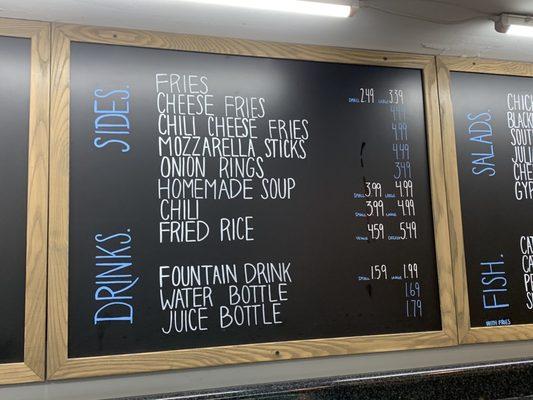 SIDES.
FRIES SMALL 2.49 LARGE 3.39
CHEESE FRIES 4.49
CHILI CHEESE FRIES 4.99
MOZZARELLA STICKS 4.49
ONION RINGS 3.49
HOMEMADE SOUP SMALL 3.99 LARGE 4.99
CHILI SMALL 3.99 LARGE 4.99
FRIED RICE 4.59 5.49
DRINKS.
FOUNTAIN DRINK SMALL 1.59 LARGE 1.99
WATER BOTTLE 1.69
JUICE BOTTLE 1.79
SALADS.
CHIC
BLACK
SOUT
JULI
CHE
GYR
FISH.
WITH FRIES
CAT
CA
P
S